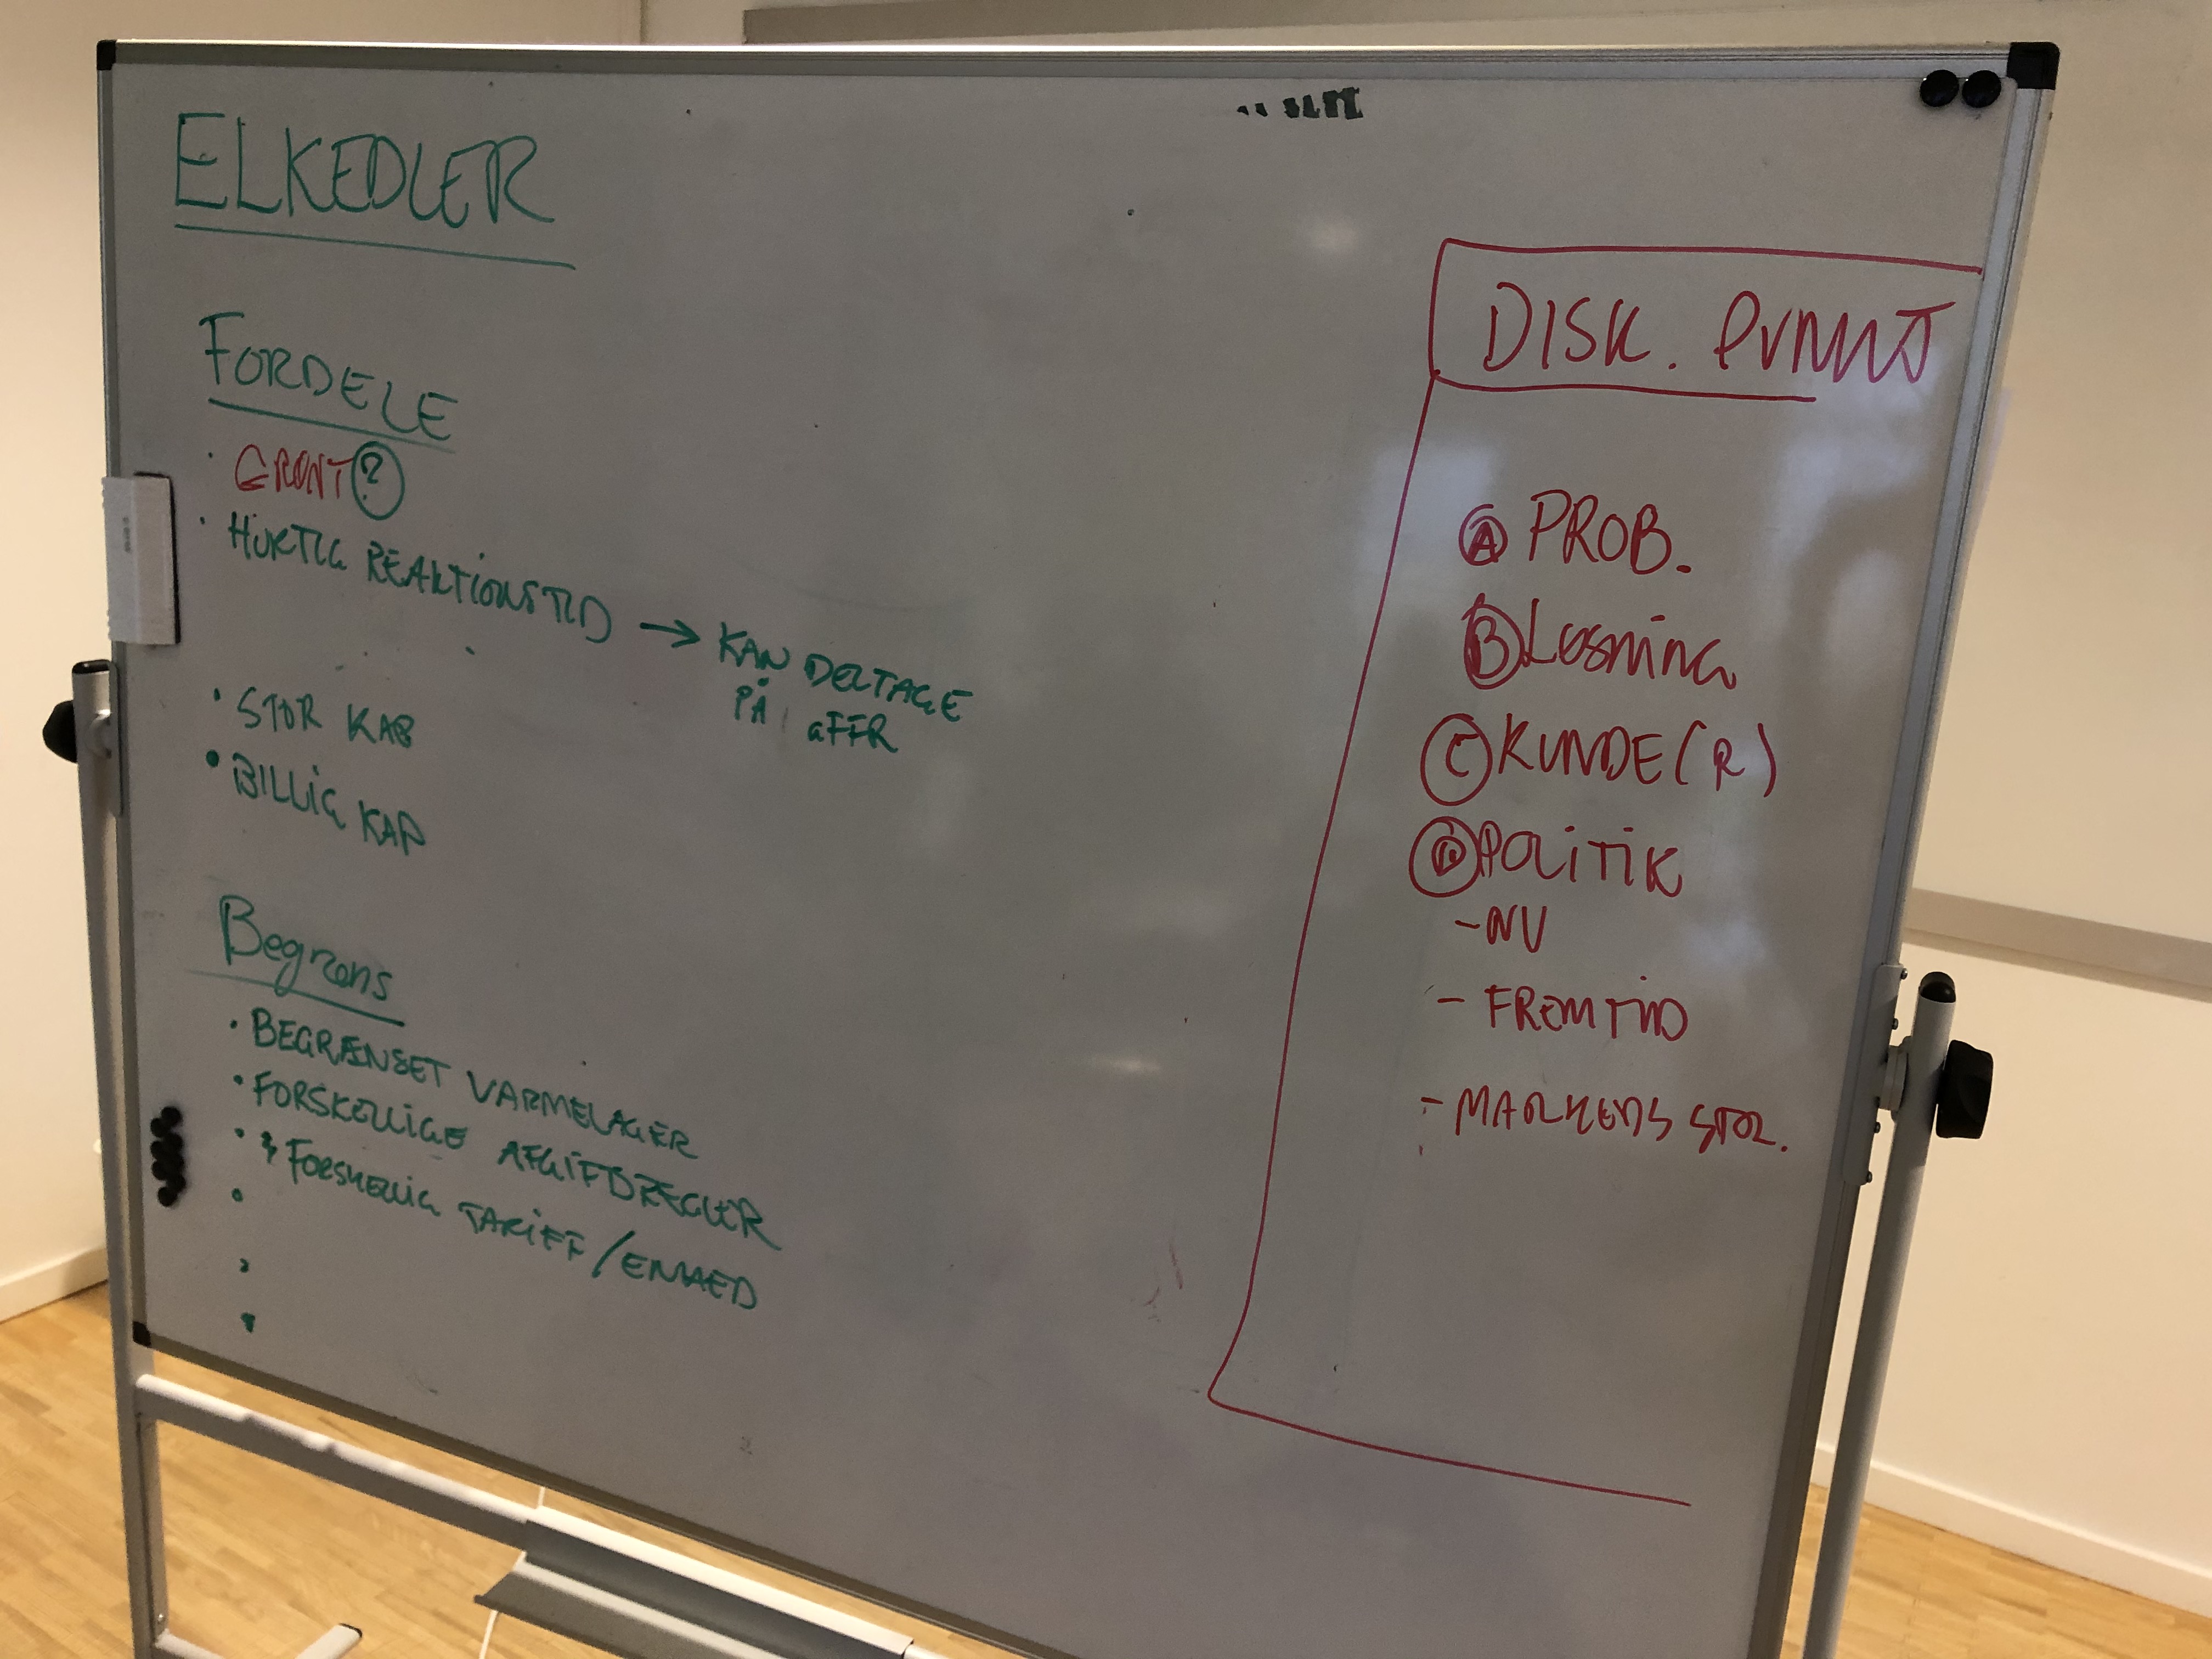 ELKEDLER
FORDELE
· GRØNT?
· HURTIG REAKTIONSTID → KAN DELTAGE
PÅ aFFR
· STOR KAP
· BILLIG KAP
Begræns
· BEGRÆNSET VARMELAGER
· FORSKELLIGE AFGIFTSREGLER
· FORSKELLIG TARIFF /
DISK. PUNKT
A PROB.
B LØSNING
C KUNDE(R)
D POLITIK
- NU
- FREMTID
- MARKEDS STØR.